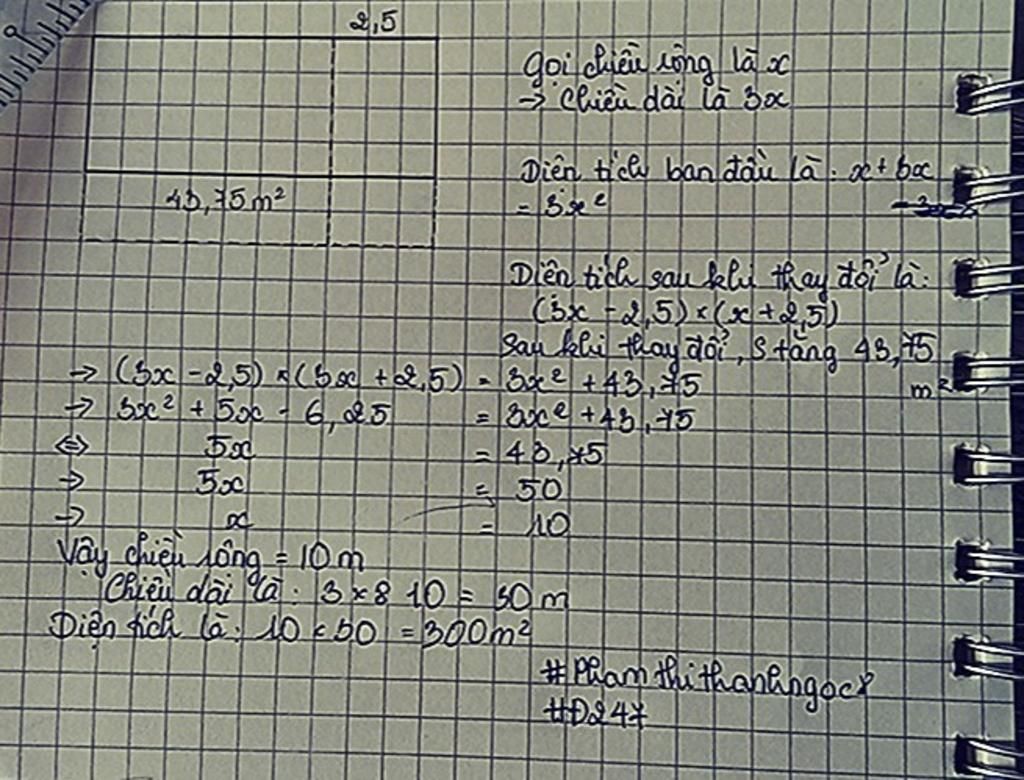 2,5
43,75m²
Gọi chiều rộng là x
→ Chiều dài là 3x
Diện tích ban đầu là : x + 3x
= 3x²
Diện tích sau khi thay đổi là:
(3x - 2,5) × (x + 2,5)
Sau khi thay đổi, S tăng 43,75
m²
→ (3x - 2,5) × (3x + 2,5) = 3x² + 43,75
→ 3x² + 5x - 6,25 = 3x² + 43,75
⇔ 5x = 43,75
→ 5x = 50
→ x = 10
Vậy chiều rộng = 10 m
Chiều dài là : 3 × 8 10 = 30 m
Diện tích là : 10 × 30 = 300m²
#Phamthithanhngoc8
#D247